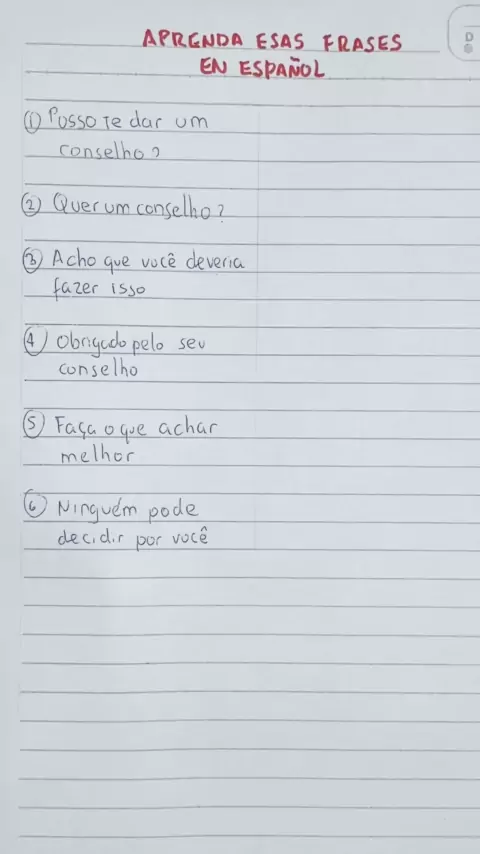 APRENDA ESAS FRASES
EN ESPAÑOL
① Posso te dar um
conselho?
② Quer um conselho?
③ Acho que você deveria
fazer isso
④ Obrigado pelo seu
conselho
⑤ Faça o que achar
melhor
⑥ Ninguém pode
decidir por você
D